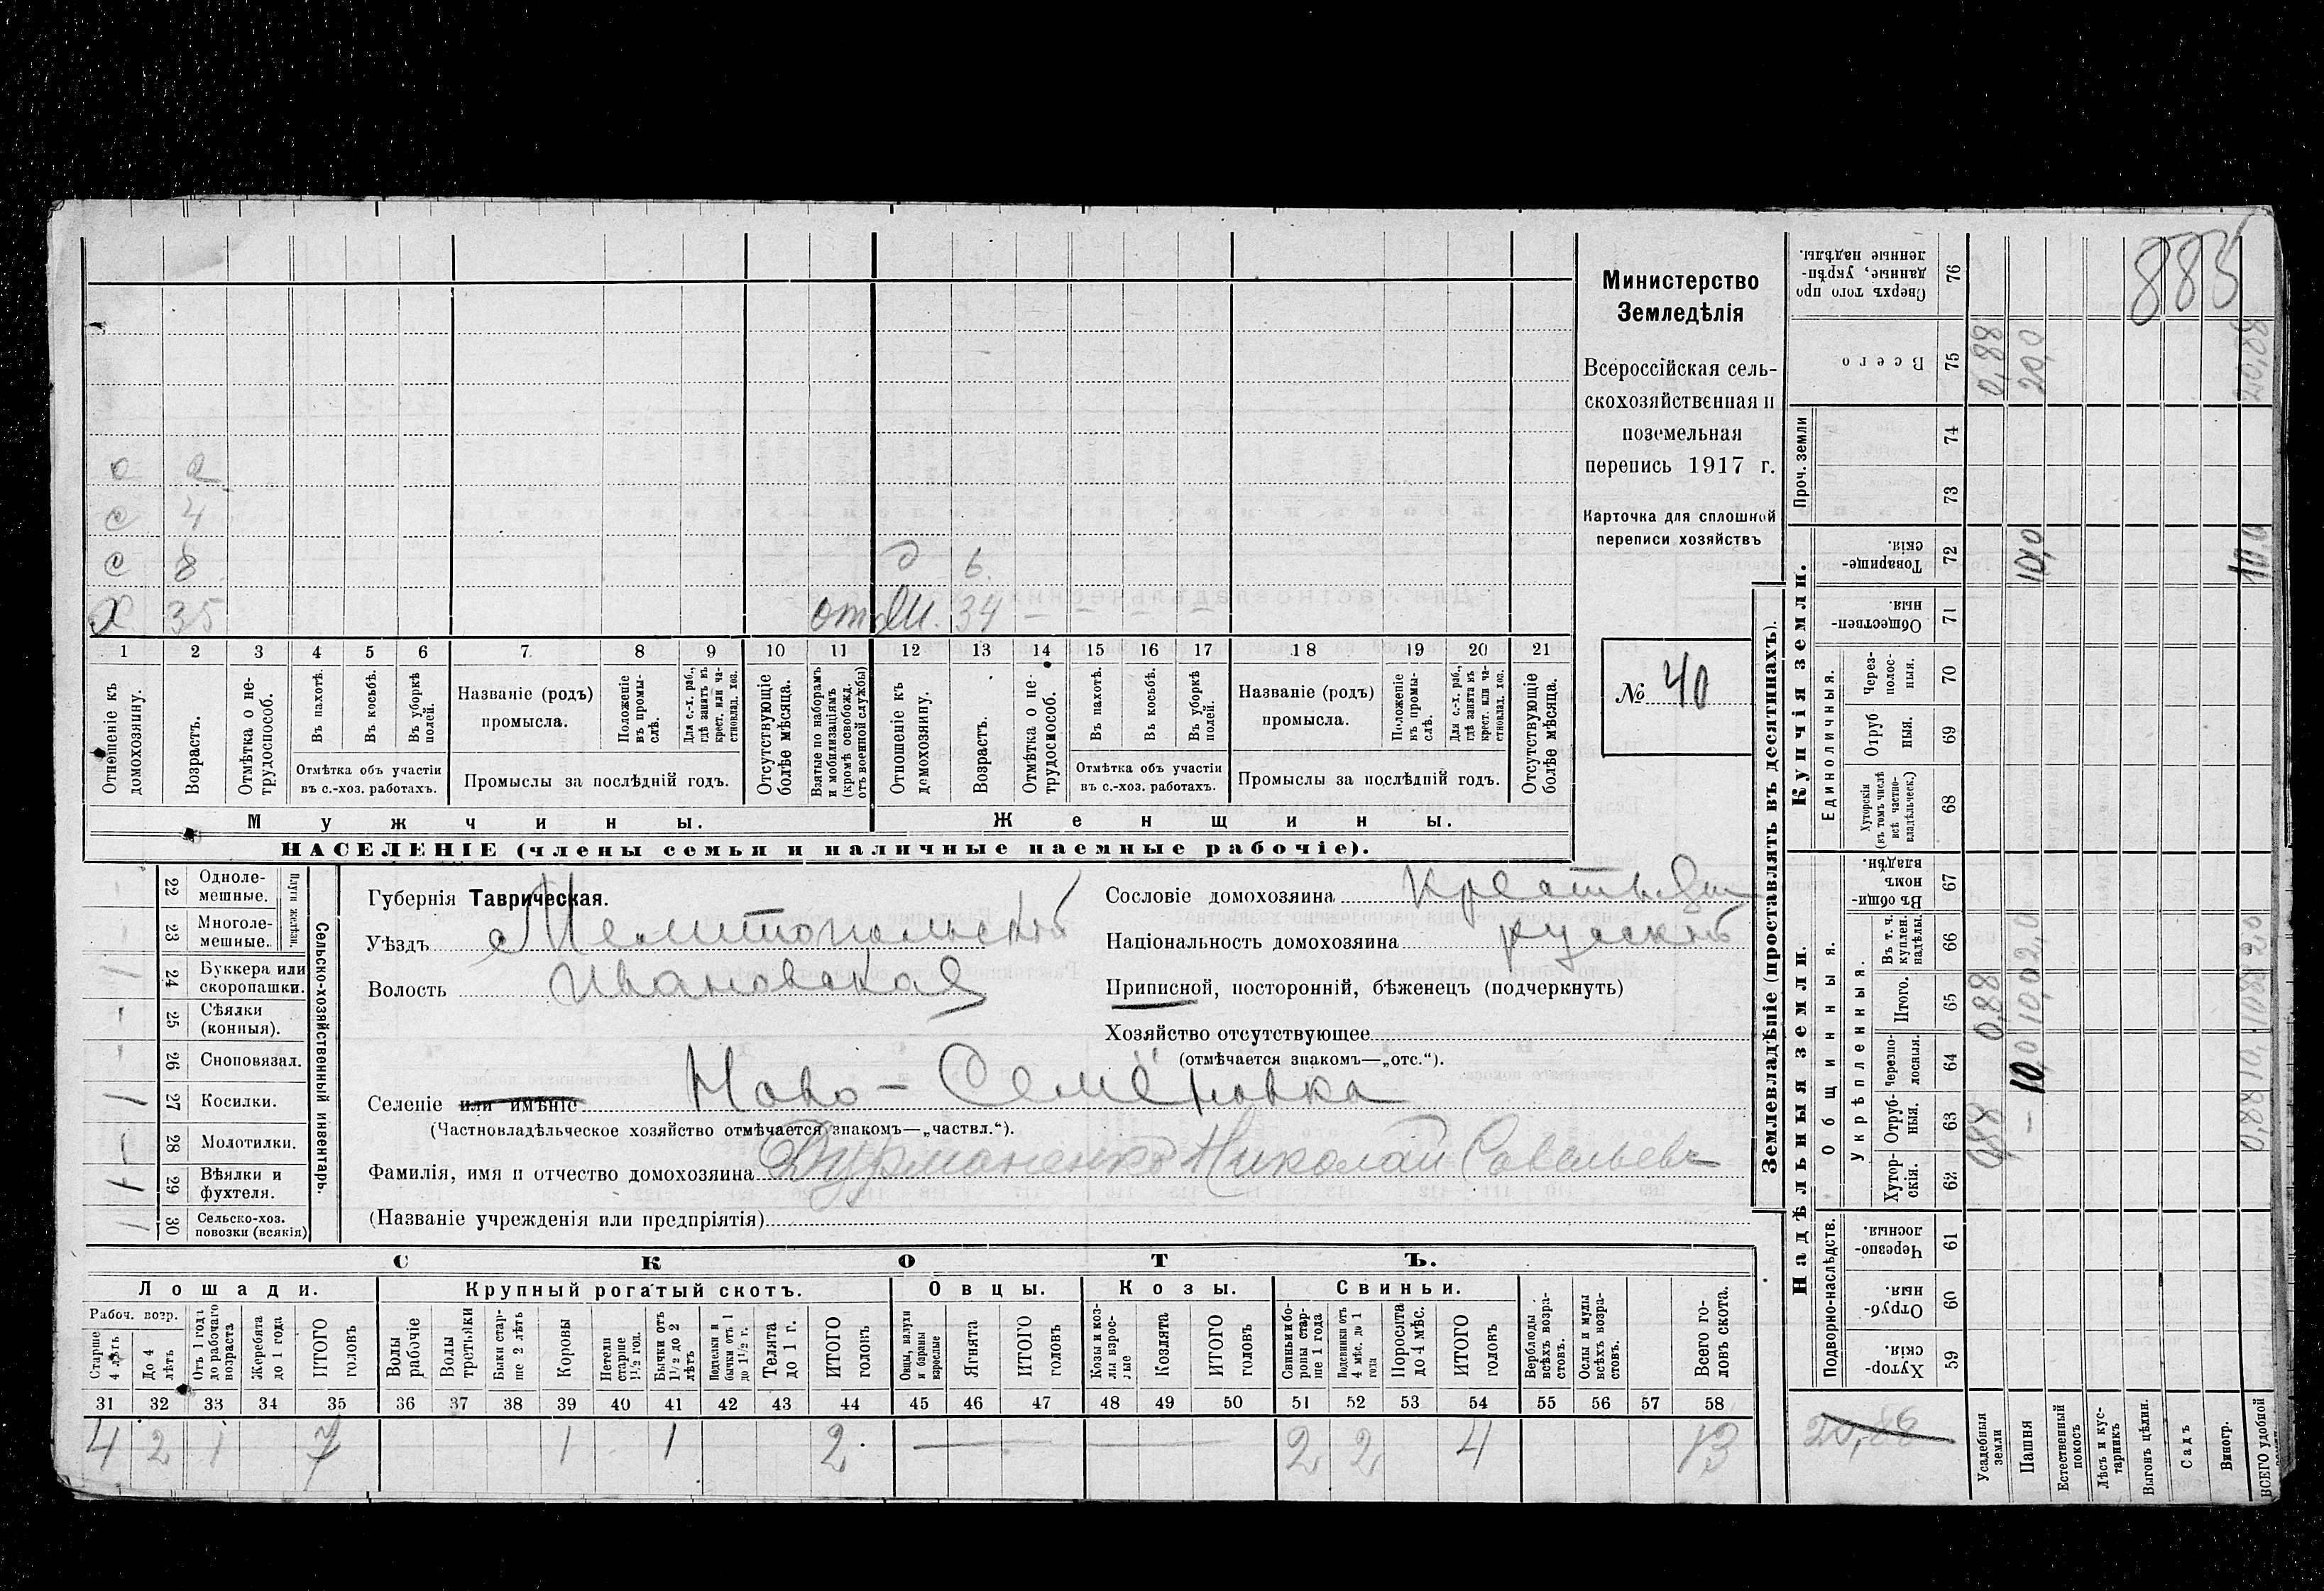 883
Министерство
Земледѣлія
Всероссійская сель-
скохозяйственная и
поземельная
перепись 1917 г.
Карточка для сплошной
переписи хозяйствъ
№ 40
с 2
с 4
с 8 д 6.
Х 35 отм. М. 34 — — — —
1 2 3 4 5 6 7 8 9 10 11 12 13 14 15 16 17 18 19 20 21
Отношеніе къ домохозяину.
Возрастъ.
Отмѣтка о не-трудоспособ.
Въ пахотѣ.
Въ косьбѣ.
Въ уборкѣ полей.
Отмѣтка объ участіи
въ с.-хоз. работахъ.
Названіе (родъ)
промысла.
Положеніе въ промы-слѣ.
Для с.-х. раб., гдѣ занятъ въ крест. или ча-стновлад. хоз.
Промыслы за послѣдній годъ.
Отсутствующіе болѣе мѣсяца.
Взятые по наборамъ и мобилизаціямъ (кромѣ освобожд. отъ военной службы)
Отношеніе къ домохозяину.
Возрастъ.
Отмѣтка о не-трудоспособ.
Въ пахотѣ.
Въ косьбѣ.
Въ уборкѣ полей.
Отмѣтка объ участіи
въ с.-хоз. работахъ.
Названіе (родъ)
промысла.
Положеніе въ промы-слѣ.
Для с.-х. раб., гдѣ занята въ крест. или ча-стновлад. хоз.
Промыслы за послѣдній годъ.
Отсутствующіе болѣе мѣсяца.
Мужчины.
Женщины.
НАСЕЛЕНІЕ (члены семьи и наличные наемные рабочіе).
Сельско-хозяйственный инвентарь.
Плуги желѣзн.
22 Одноле-мешные.
23 Многоле-мешные.
24 Буккера или скоропашки.
25 Сѣялки (конныя).
26 Сноповязал.
27 Косилки.
28 Молотилки.
29 Вѣялки и фухтеля.
30 Сельско-хоз. повозки (всякія)
Губернія Таврическая.
Уѣздъ Мелитопольскій
Волость Ивановская
Сословіе домохозяина Крестьян
Національность домохозяина русскій
Приписной, посторонній, бѣженецъ (подчеркнуть)
Хозяйство отсутствующее
(отмѣчается знакомъ—„отс.“).
Селеніе или имѣніе Ново-Семёновка
(Частновладѣльческое хозяйство отмѣчается знакомъ—„частвл.“).
Фамилія, имя и отчество домохозяина Дурманенко Николай Савельевъ
(Названіе учрежденія или предпріятія)
СКОТЪ.
Лошади. Крупный рогатый скотъ. Овцы. Козы. Свиньи.
Рабоч. возр.
Старше 4 лѣтъ
До 4 лѣтъ
Отъ 1 года до рабочаго возраста
Жеребята до 1 года
ИТОГО головъ
Волы рабочіе
Волы третьяки
Быки стар-ше 2 лѣтъ
Коровы
Нетели старше 1½ год.
Бычки отъ 1½ до 2 лѣтъ
Подтелки и бычки отъ 1 до 1½ г.
Телята до 1 г.
ИТОГО головъ
Овцы, валухи и бараны взрослые
Ягнята
ИТОГО головъ
Козы и коз-лы взрос-лые
Козлята
ИТОГО головъ
Свиньи и бо-ровы стар-ше 1 года
Подсвинки отъ 4 мѣс. до 1 года
Поросята до 4 мѣс.
ИТОГО головъ
Верблюды всѣхъ возра-стовъ.
Ослы и мулы всѣхъ возра-стовъ.
Всего го-ловъ скота.
31 32 33 34 35 36 37 38 39 40 41 42 43 44 45 46 47 48 49 50 51 52 53 54 55 56 57 58
4 2 1 7 1 1 2 — — 2 2 4 13
Землевладѣніе (проставлять въ десятинахъ).
Надѣльныя земли.
Купчія земли.
Проч. земли
Подворно-наслѣдств.
Общинныя.
Укрѣпленныя.
Единоличныя.
Хутор-скія. 59
Отруб-ныя. 60
Черезпо-лосныя. 61
Хутор-скія. 62
Отруб-ныя. 63
Черезпо-лосныя. 64
Итого. 65
Въ т. ч. куплен. надѣлы. 66
Въ общин-номъ владѣн. 67
Хуторскія (въ томъ числѣ всѣ частно-владѣльческ.) 68
Отруб ныя. 69
Через-полос-ныя. 70
Обществен-ныя. 71
Товарище-скія. 72
73
74
Всего 75
Сверхъ того про данные, укрѣп-ленные надѣлы. 76
20,88
Усадебныя земли 0,88 0,88 0,88
Пашня — 10,0 10,0 2,0 10,0 20,0
Естественный покосъ
Лѣсъ и кус-тарникъ
Выгонъ цѣлин.
Садъ
Виногр.
ВСЕГО удобной 0,88 10, 10,88 2,0 10,0 20,88